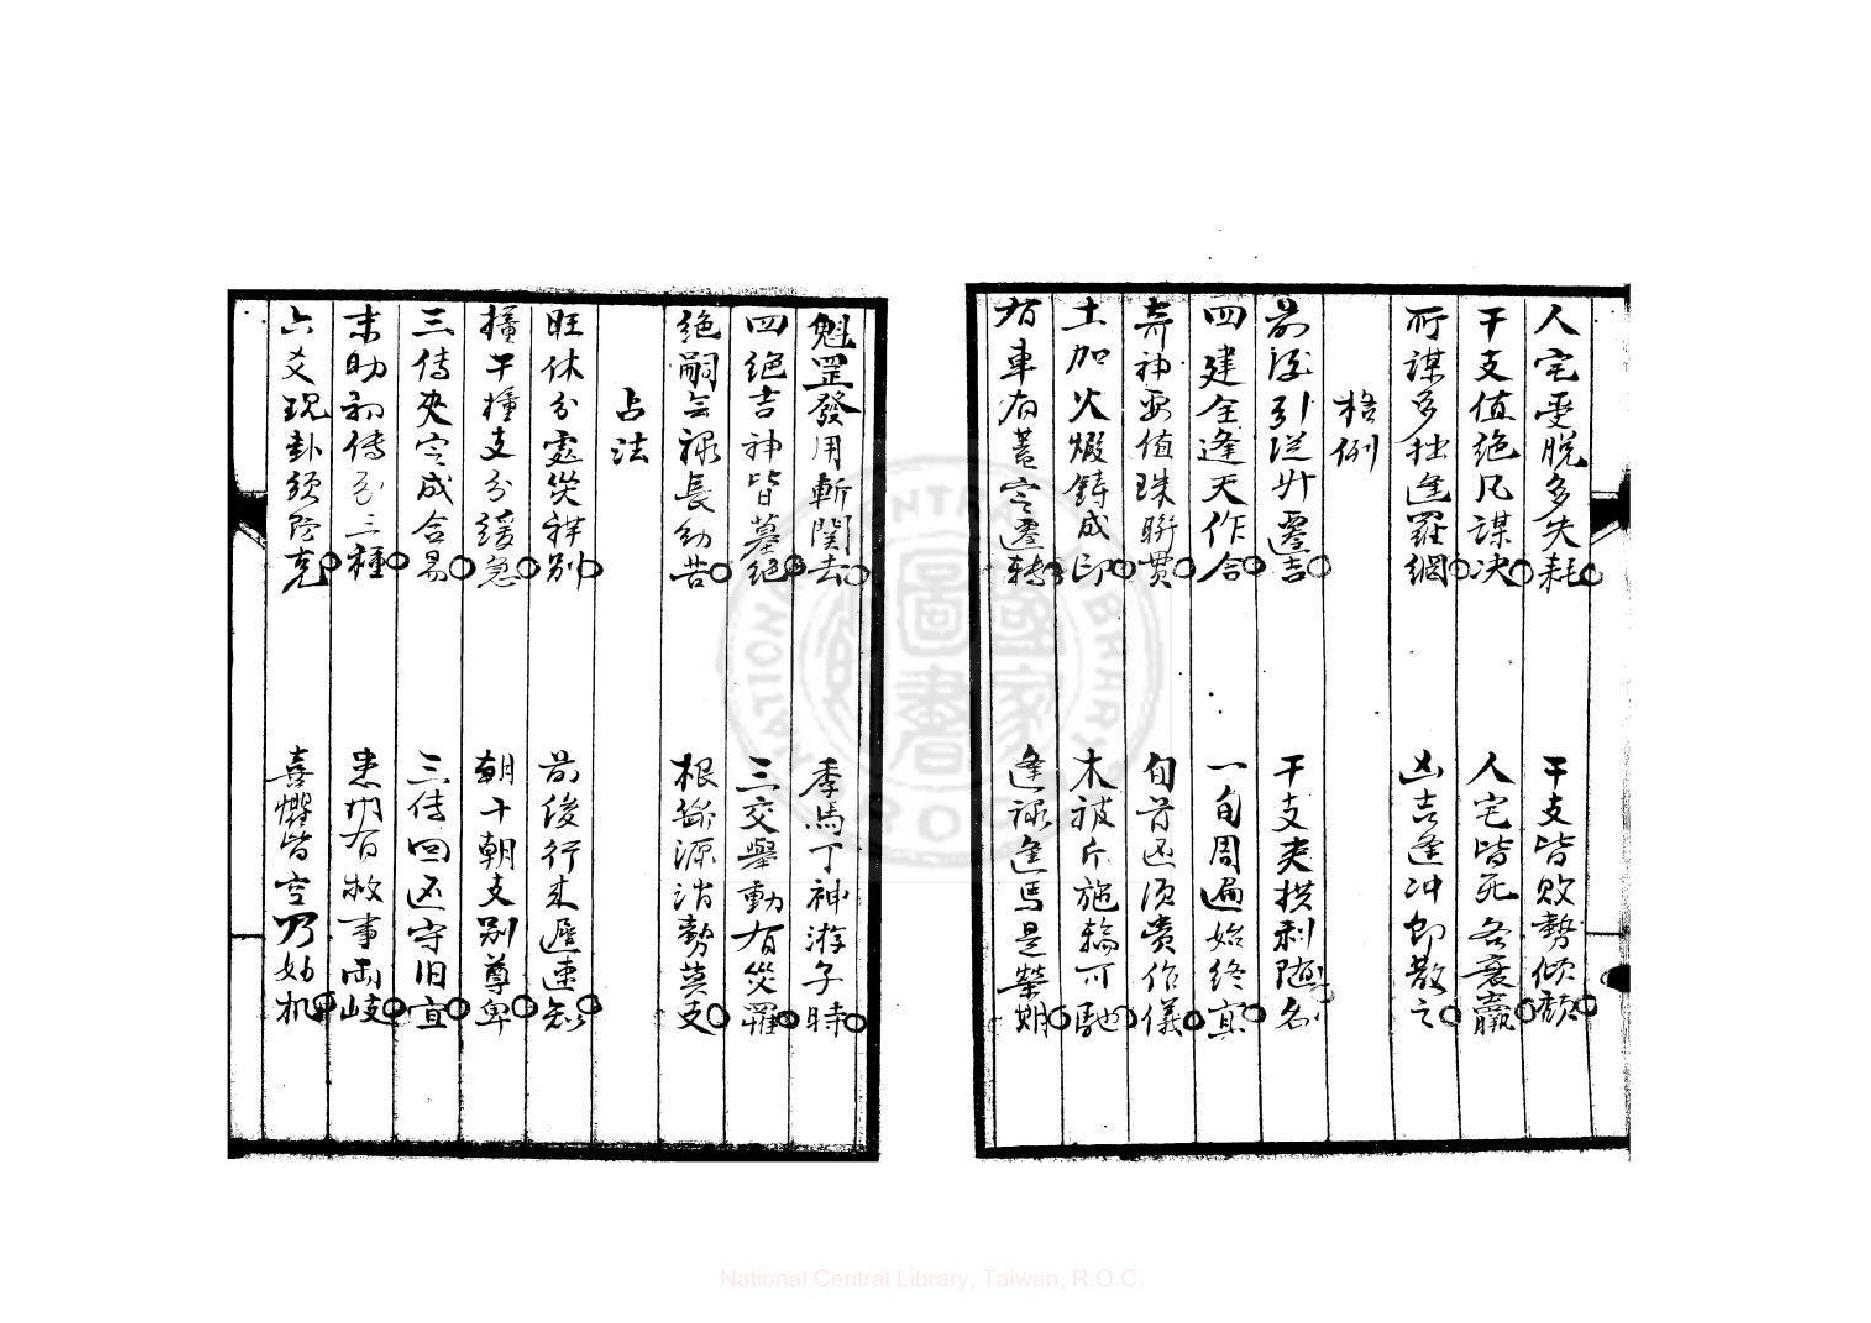 人宅受脫多失耗　干支皆敗勢傾頹
干支值絕凡謀決　人宅皆死各衰羸
所謀多拙逢羅網　凶吉逢冲即散之
格例
前後引從升遷吉　干支夾拱剥随名
四建全逢天作合　一旬周遍始終宜
奔神要值珠聯貫　旬首迅須費作儀
土加火煅鑄成印　木被斤施輪可馳
有車有蓋官遷轉　逢祿逢馬是榮期
魁罡發用斬関去　季馬丁神游子時
四絕吉神皆墓絕　三交舉動有災罹
絕嗣無祿長幼苦　根斷源消勢莫支
占法
旺休分處災祥別　前後行来遲速知
撞干撞支分緩急　朝干朝支別尊卑
三傳夾定成合易　三傳回還守旧宜
末助初傳分三種　患門有救事兩岐
六爻現卦須防克　喜懼皆空乃妙机
National Central Library, Taiwan, R.O.C.